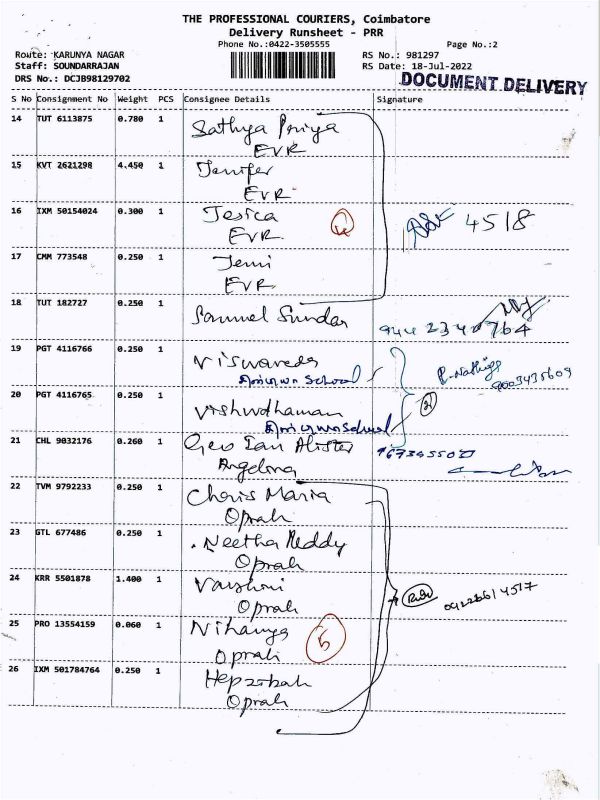 THE PROFESSIONAL COURIERS, Coimbatore
Delivery Runsheet - PRR
Phone No.:0422-3505555 Page No.:2
Route: KARUNYA NAGAR RS No.: 981297
Staff: SOUNDARRAJAN RS Date: 18-Jul-2022
DRS No.: DCJB98129702 DOCUMENT DELIVERY
S No Consignment No Weight PCS Consignee Details Signature
14 TUT 6113875 0.780 1 Sathya Priya
EVR
15 KVT 2621298 4.450 1 Jenifer
EVR
16 IXM 50154024 0.300 1 Jesica
EVR 4518
17 CMM 773548 0.250 1 Jemi
EVR
18 TUT 182727 0.250 1 Samuel Sundar
19 PGT 4116766 0.250 1
School 9003435609
20 PGT 4116765 0.250 1
School
21 CHL 9032176 0.260 1 Geo Ian Alister
Angelina
22 TVM 9792233 0.250 1 Charis Maria
Oprah
23 GTL 677486 0.250 1 Neetha Reddy
Oprah
24 KRR 5501878 1.400 1 Varshini
Oprah
25 PRO 13554159 0.060 1 Nihanya 5
Oprah
26 IXM 501784764 0.250 1 Hepzibah
Oprah